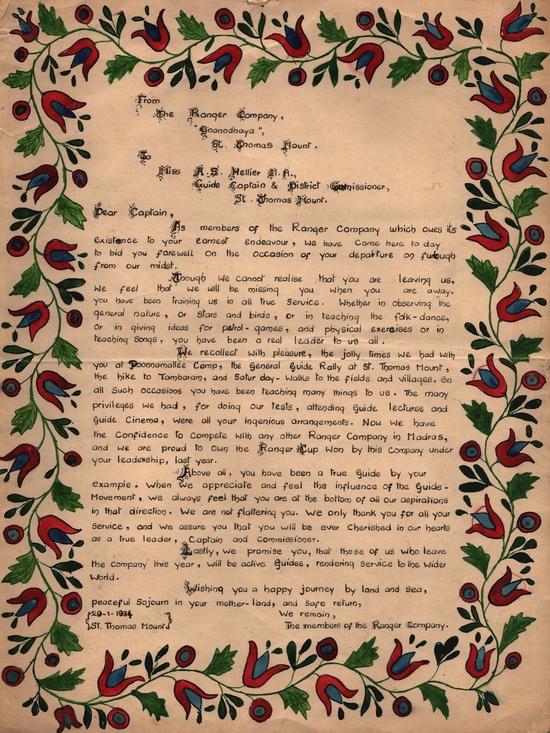 From
The Ranger Company,
"Gnanodhaya",
St. Thomas Mount.
To
Miss A. S. Hellier M.A.,
Guide Captain & District Commissioner,
St. Thomas Mount.
Dear Captain,
As members of the Ranger Company which owes its
existence to your earnest endeavour, we have come here to day
to bid you farewell on the occasion of your departure on furlough
from our midst.
Though we cannot realise that you are leaving us,
we feel that we will be missing you when you are away.
you have been training us in all true Service. Whether in observing the
general nature, or Stars and birds, or in teaching the folk-dance,
Or in giving ideas for patrol-games, and physical exercises or in
teaching songs, you have been a real leader to us all.
We recollect with pleasure, the jolly times we had with
you at Poonnamallee Camp, the General Guide Rally at St. Thomas Mount,
the hike to Tambaram, and Satur day-walks to the fields and villages. On
all such occasions you have been teaching many things to us. The many
privileges we had, for doing our tests, attending Guide lectures and
Guide Cinema, were all your ingenious arrangements. Now we have
the Confidence to compete with any other Ranger Company in Madras,
and we are proud to own the Ranger Cup won by this Company under
your leadership, last year.
Above all, you have been a true Guide by your
example. When we appreciate and feel the influence of the Guide-
Movement, we always feel that you are at the bottom of all our aspirations
in that direction. We are not flattering you. We only thank you for all your
service, and we assure you that you will be ever Cherished in our hearts
as a true leader, Captain and Commissioner.
Lastly, we promise you, that those of us who leave
the company this year, will be active Guides, rendering service to the wider
World.
Wishing you a happy journey by land and sea,
peaceful Sojourn in your mother-land, and safe return,
29-1-1934 We remain,
St. Thomas Mount The members of the Ranger Company.